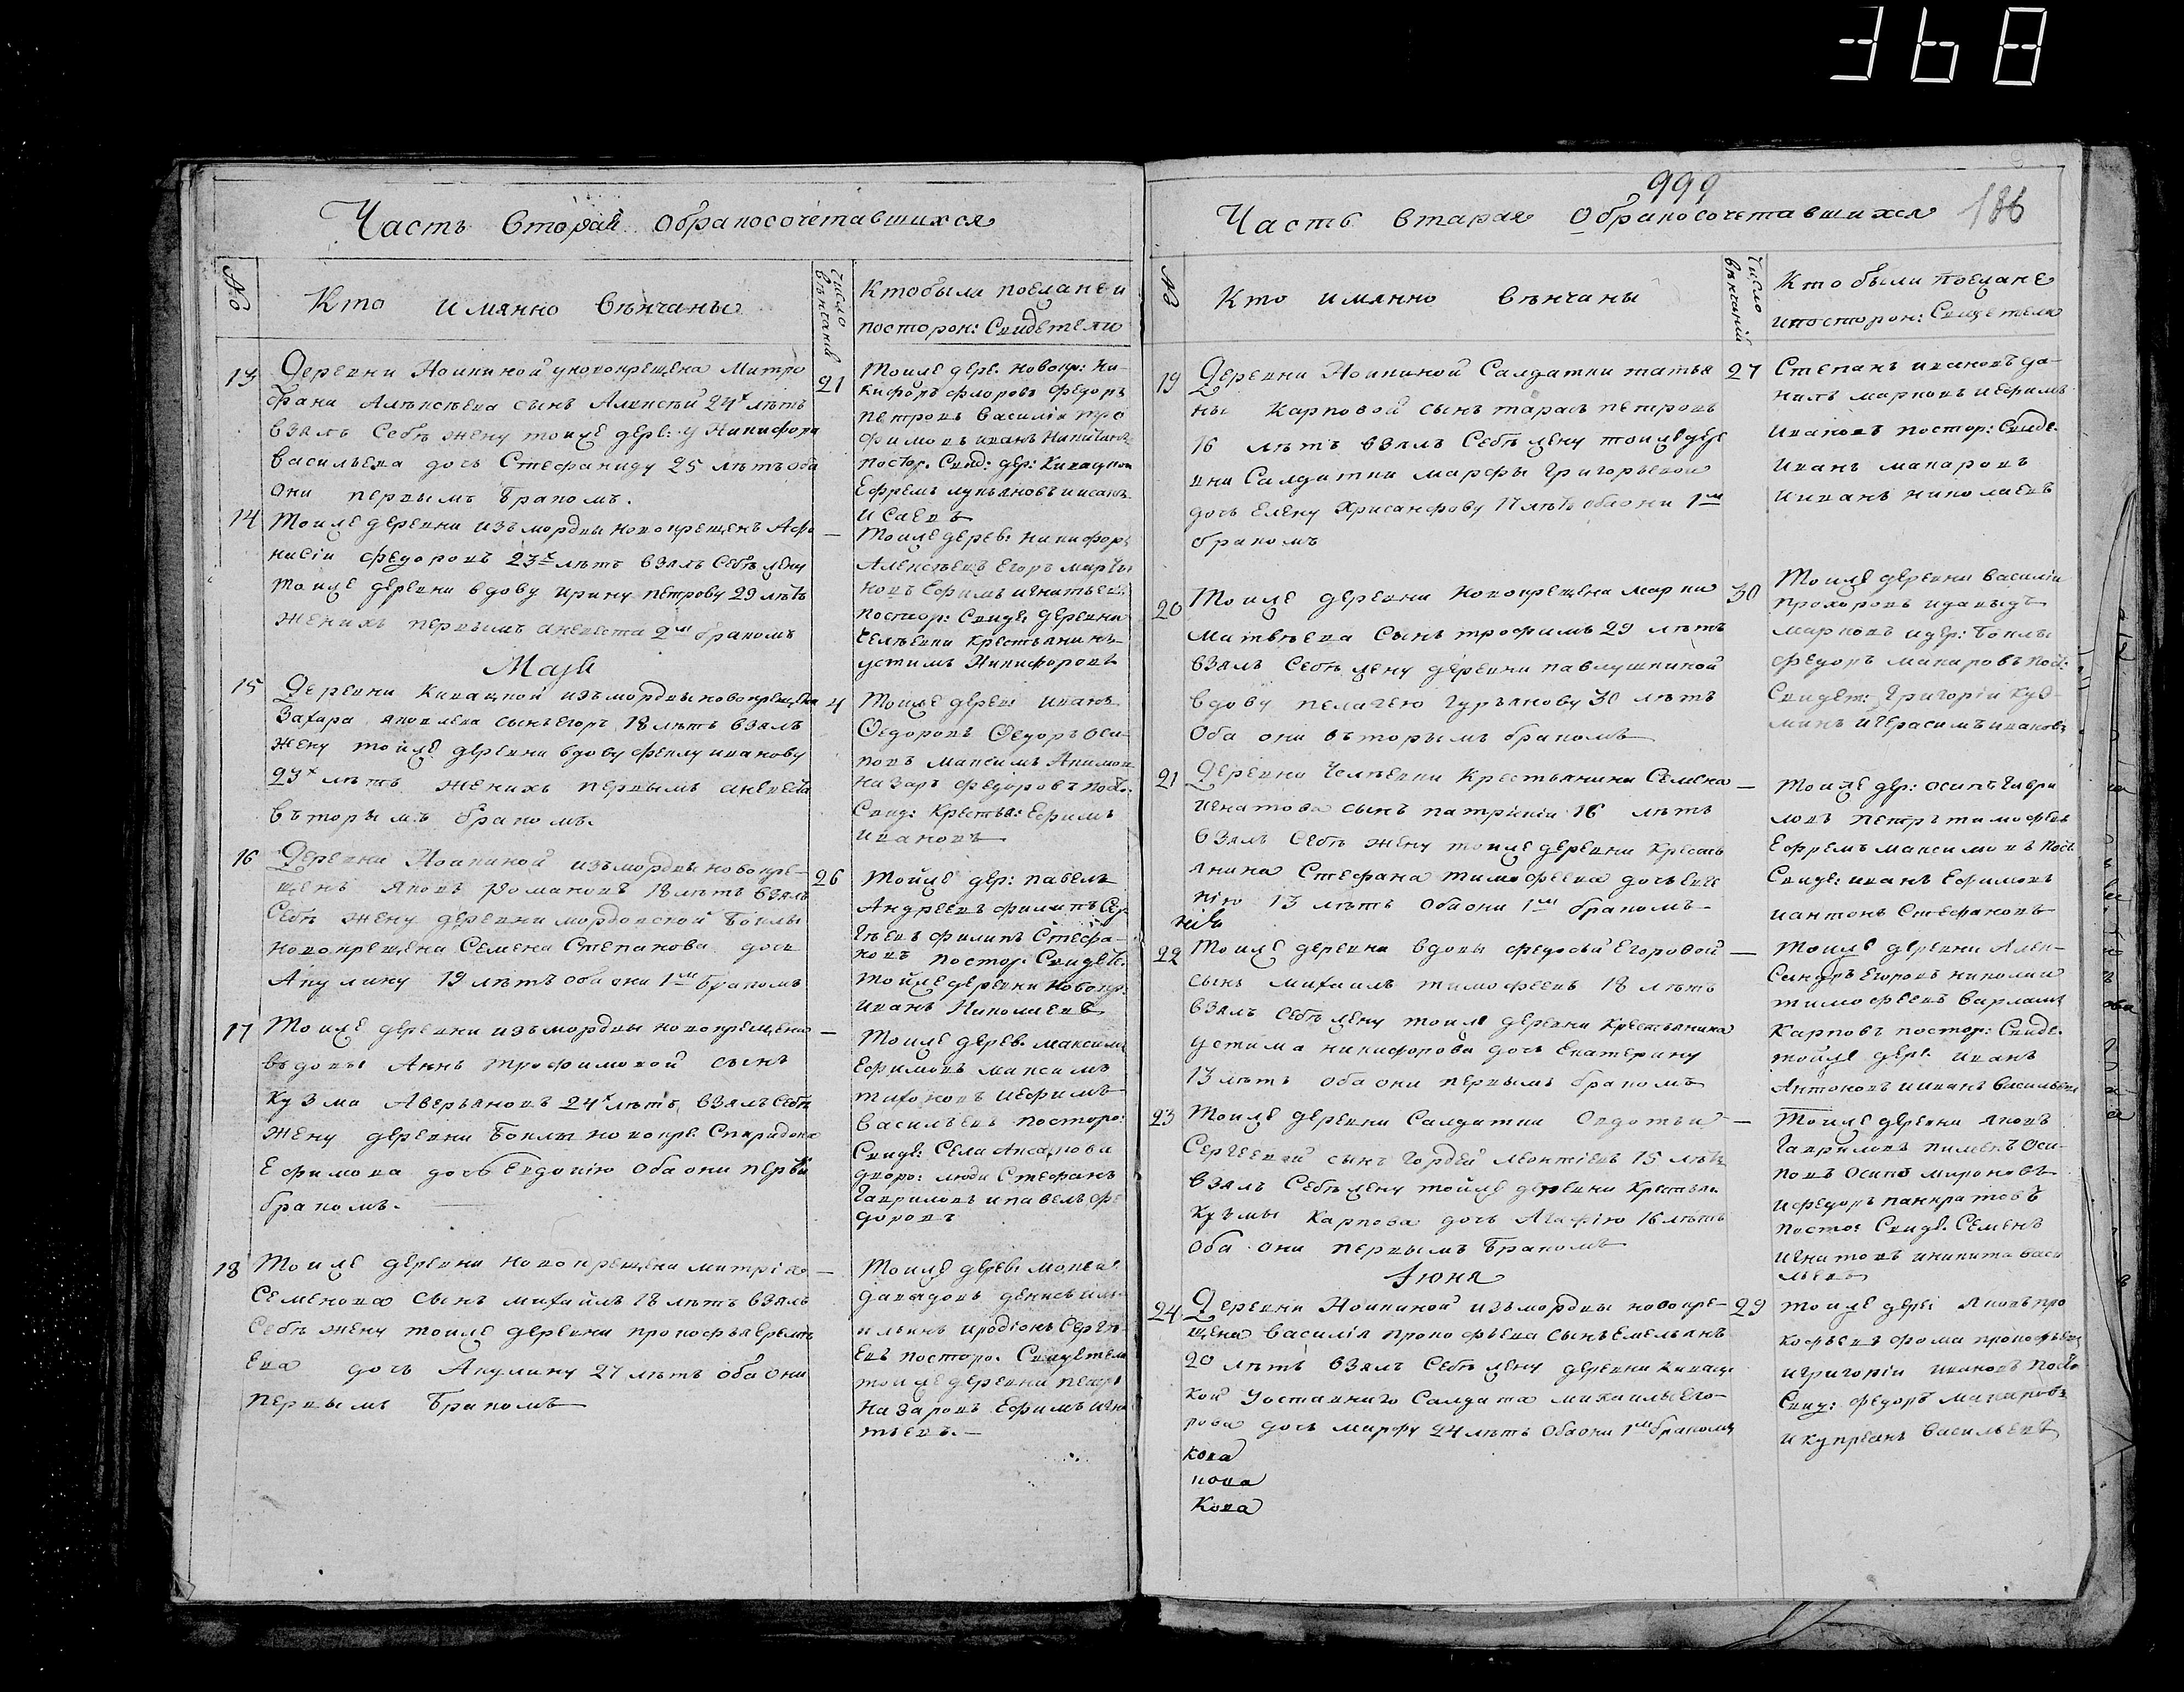 368
Часть вторая о бракосочетавшихся
№
Кто имянно венчаны
Число венчаний
Кто были поезжане и
посторон: Свидетели
13
Деревни Ионкиной у новокрещена Митро
фана Алексѣева сынъ Алексѣй 24х лѣтъ
взялъ Себѣ жену тоиже дере: у Никифора
васильева дочь Стефаниду 25 лѣтъ оба
они первымъ бракомъ.
21
Тоиже дере. новокр: Ни-
кифоръ флоровъ Федоръ
петровъ Василіи тро
фимовъ иванъ
постор. Свид: дер:
Ефремъ лукьяновъ и исакъ
Исаевъ
14
Тоиже деревни изъ мордвы новокрещенъ Афо
насіи федоровъ 23х лѣтъ взялъ Себѣ жену
тоиже деревни вдову ирину петрову 29 лѣтъ
женихъ первымъ а невеста 2м бракомъ
—
Тоиже дерев: никифоръ
Алексѣевъ Егоръ
новъ Ефимъ игнатьевъ
постор: Свиде: деревни
Селѣевки Крестьянинъ
устимъ Никифоровъ
Маія
15
Деревни Кивацкой изъ мордвы новокрещена
Захара яковлева сынъ Егоръ 18 лѣтъ взялъ
жену тоиже деревни вдову феклу иванову
23х лѣтъ женихъ первымъ а невеста
въторымъ бракомъ.
4
Тоиже дерев: иванъ
Федоровъ Федоръ Оси-
повъ максимъ Якимов
назаръ федоровъ посто.
Свид: Крестья: Ефимъ
ивановъ
16
Деревни Ионкиной изъ мордвы новокре-
щенъ яковъ Романовъ 18 лѣтъ взялъ
Себѣ жену деревни мордовской Боклы
новокрещена Семена Степанова дочь
Акулину 19 лѣтъ оба они 1м бракомъ
26
Тоиже дер: павелъ
Андреевъ филипъ Сер
гѣевъ филипъ Стефа-
новъ постор. Свидете.
тоиже деревни новокр:
иванъ Николаевъ
17
Тоиже деревни изъ мордвы новокрещена
въдовы Аннъ трофимовой сынъ
Кузма Аверьяновъ 24х лѣтъ, взялъ Себѣ
жену деревни Боклы новокре. Спиридона
Ефимова дочь Евдокію оба они первы
бракомъ.
—
Тоиже дерев. максимъ
Ефимовъ максимъ
тихоновъ и ефимъ
василѣевъ посторо:
Свиде: Села Аксакова
дворо: люди Стефанъ
Гавриловъ и павелъ фе
доровъ
18
Тоиже деревни новокрещена митріа
Семенова сынъ михаилъ 18 лѣтъ взялъ
Себѣ жену тоиже деревни прокофья Еремѣ
Ева дочь Акулину 27 лѣтъ оба они
первымъ бракомъ
—
Тоиже дерев:
давыдовъ денисъ
ильинъ иродіонъ Сергѣ
Евъ посторо. Свидетели
тоиже деревни петръ
назаровъ Ефимъ игна
тьевъ.
999
186
Часть вторая о бракосочетавшихся
№
Кто имянно венчаны
Число венчаний
Кто были поезжане
и посторон: Свидетели
19
Деревни Ионкиной Салдатки татья
ны Карповой сынъ тарасъ петровъ
16 лѣтъ взялъ Себѣ жену тоиже дере
вни Салдатки марфы Григорьевой
дочь Елену Хрисанфову 17 лѣтъ оба они 1м
бракомъ
27
Степанъ ивановъ да-
нилъ марковъ и ефимъ
Ивановъ постор: Свиде.
Иванъ макаровъ
и иванъ николаевъ
20
Тоиже деревни новокрещена марка
Матвѣева Сынъ трофимъ 29 лѣтъ
взялъ Себѣ жену деревни павлушкиной
вдову пелагею гурьянову 30 лѣтъ
оба они въторымъ бракомъ
30
Тоиже деревни василіи
прохоровъ и давыдъ
марковъ и дер: Боклы
федоръ макаровъ пост:
Свидет: Григоріи куз-
минъ и герасимъ ивановъ
21
Деревни Челѣевки Крестьянина Семена
игнатова сынъ патрикіи 16 лѣтъ
взялъ Себѣ жену тоиже деревни Кресть
янина Стефана тимофеева дочь Евге
нію 13 лѣтъ оба они 1м бракомъ
—
Тоиже дер: осипъ Гаври
ловъ петръ тимофеевъ
Ефремъ максимовъ пост
Свиде: иванъ Ефимовъ
и антонъ Стефановъ
22
Тоиже деревни вдовы федосьи Егоровой
сынъ михаилъ тимофеевъ 18 лѣтъ
взялъ Себѣ жену тоиже деревни Крестьянина
устима никифорова дочь Екатерину
13 лѣтъ оба они первымъ бракомъ
—
Тоиже деревни Алек-
Сандръ Егоровъ николаи
тимофеевъ варламъ
Карповъ постор: Свиде.
тоиже дере. иванъ
Антоновъ и иванъ васильевъ
23
Тоиже деревни Салдатки Овдотьи
Сергеевой сынъ Гордей леонтіевъ 15 лѣтъ
взялъ Себѣ жену тоиже деревни Крестьян.
Кузьмы Карпова дочь Агафію 16 лѣтъ
оба они первымъ бракомъ
—
Тоиже деревни яковъ
Гавриловъ пименъ оси-
повъ осипъ мироновъ
и федоръ панкратовъ
посто: Свиде. Семенъ
игнатовъ и никита васи
льевъ
Іюня
24
Деревни Ионкиной изъ мордвы новокре-
щена василія прокофьева сынъ Емельянъ
20 лѣтъ взялъ Себѣ жену деревни кивац
кой у оставнаго Салдата михаилы Его-
рова дочь марфу 24 лѣтъ оба они 1м бракомъ
29
тоиже дере: яковъ про
кофьевъ фома прокофьевъ
и григоріи ивановъ посто
Свид: федоръ макаровъ
и купреянъ васильевъ
кова
кова
Кова